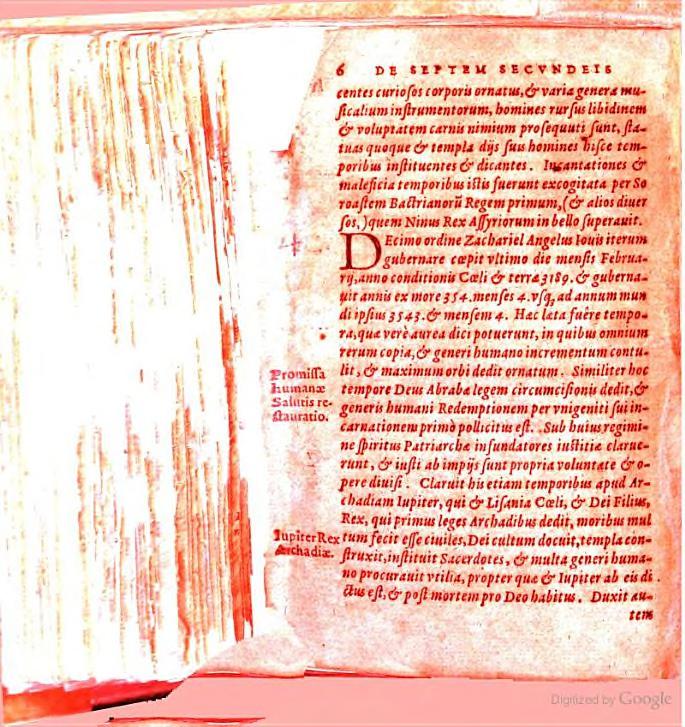 6 DE SEPTEM SECVNDEIS
centes curiosos corporis ornatus, & varia genera mu-
sicalium instrumentorum, homines rursus libidinem
& voluptatem carnis nimium prosequuti sunt, sta-
tuas quoque & templa dijs suis homines hisce tem-
poribus instituentes & dicantes. Incantationes &
maleficia temporibus istis fuerunt excogitata per So
roastem Bactrianorũ Regem primum, (& alios diuer
sos,) quem Ninus Rex Assyriorum in bello superauit.
DEcimo ordine Zachariel Angelus Iouis iterum
gubernare cœpit vltimo die mensis Februa-
rij, anno conditionis Cœli & terræ 3189. & guberna-
uit annis ex more 354. menses 4. vsq, ad annum mun
di ipsius 3543. & mensem 4. Hæc læta fuêre tempo-
ra, quæ verè aurea dici potuerunt, in quibus omnium
rerum copia, & generi humano incrementum contu-
lit, & maximum orbi dedit ornatum. Similiter hoc
tempore Deus Abrahæ legem circumcisionis dedit, &
generis humani Redemptionem per vnigeniti sui in-
carnationem primò pollicitus est. Sub huius regimi-
ne spiritus Patriarchæ in fundatores iustitiæ clarue-
runt, & iusti ab impijs sunt propria voluntate & o-
pere diuisi. Claruit his etiam temporibus apud Ar-
chadiam Iupiter, qui & Lisania Cœli, & Dei Filius,
Rex, qui primus leges Archadibus dedit, moribus mul
tum fecit esse ciuiles, Dei cultum docuit, templa con-
struxit, instituit Sacerdotes, & multa generi huma-
no procurauit vtilia, propter quæ & Iupiter ab eis di
ctus est, & post mortem pro Deo habitus. Duxit au-
tem
Promissa
humanæ
Salutis re-
stauratio.
Iupiter Rex
Archadiæ.
Digitized by Google